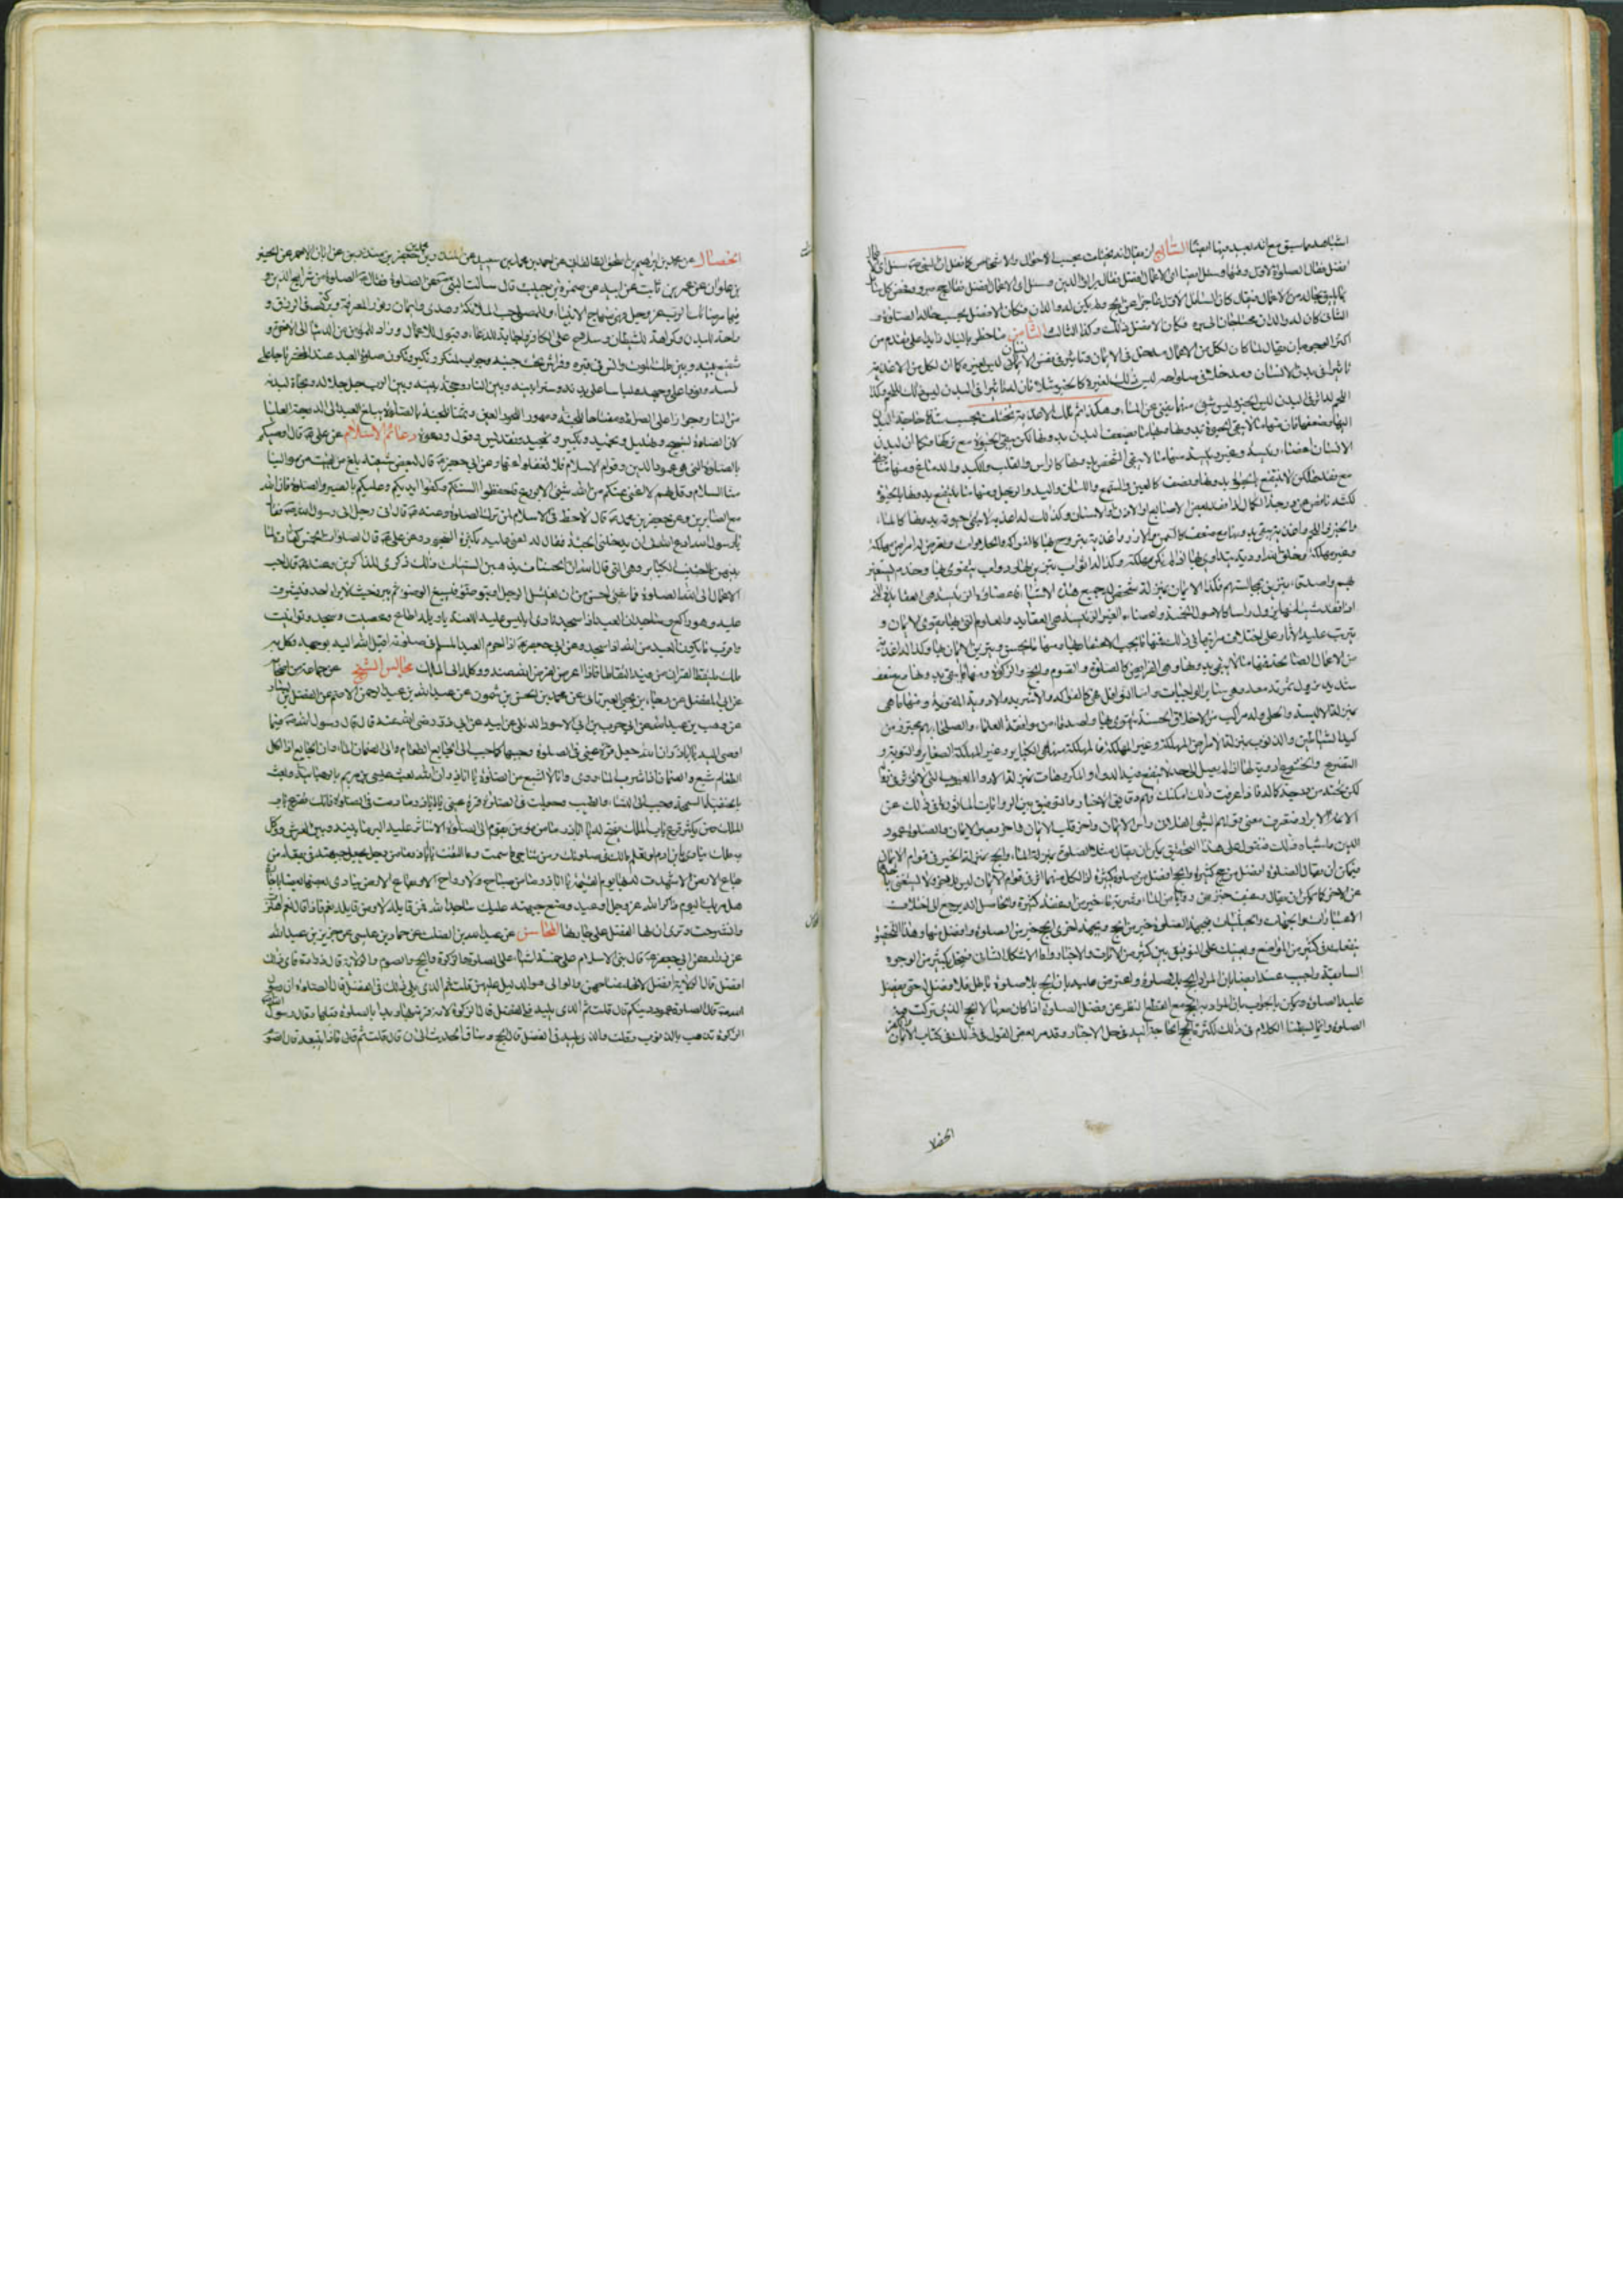 اشباهه ما سبق مع انه بعيد منها ايضا السابع ان يقال انه يختلف بحسب الاحوال والاشخاص كما نقل ان النبي ص سئل اي الاعمال
افضل فقال الصلوة لاول وقتها وسئل ايضا اي الاعمال افضل فقال بر الوالدين وسئل اي الاعمال افضل فقال حج مبرور فخص كل سائل
بما يليق بحاله من الاعمال فيقال كان السائل الاول عاجزا عن الحج ولم يكن له والدان فكان الافضل بحسب حاله الصلوة و
الثاني كان له والدان محتاجان الى بره فكان الافضل ذلك وكذا الثالث الثامن ما خطر بالبال زايدا على ما تقدم من
اكثر الوجوه بان يقال لما كان لكل من الاعمال مدخل في الايمان وتاثير في نفس الانسان ليس لغيره كما ان لكل من الاغذية
تاثيرا في بدن الانسان ومدخلا في صلاحه ليس ذلك لغيره كالخبز مثلا فان له تاثيرا في البدن ليس ذلك للحم وكذا
اللحم له اثر في البدن ليس للخبز وليس شيء منهما يغني عن الماء وهكذا ثم تلك الاغذية تختلف بحسب شدة حاجة البدن
اليها وضعفها فان منها ما لا تبقى الحيوة بدونها ومنها ما يضعف البدن بدونها لكن تبقى الحيوة مع تركها فكما ان لبدن
الانسان اعضاء رئيسة وغير رئيسة منها ما لا يبقى الشخص بدونها كالراس والقلب والكبد والدماغ ومنها ما يبقى
مع فقدها لكن لا ينتفع بالحيوة بدونها كالعين والسمع واللسان واليد والرجل ومنها ما ينتفع بدونها بالحيوة
لكنه ناقص عن درجة الكمال كما فقد بعض الاصابع او الاذن او الاسنان وكذلك له اغذية لا يحيى بدونها كالماء
والخبز واللحم واغذية يبقى بدونها مع ضعف كالسمن والارز واغذية يتروح بها كالفواكه والحلاوات وتعرض له امراض مهلكة
وغير مهلكة وخلق الله له ادوية يتداوى بها اذا لم تكن مهلكة وكذا له اثواب يتزين بها ودواب يتقوى بها وخدم يستعين
بهم واصدقاء يتزين بمجالستهم فكذا الايمان بمنزلة شخص له جميع هذه الاشياء فاعضاؤه الرئيسة هي العقايد التي
اذا فقد شيء منها يزول راسا كالاصول الخمسة واعضاءه الغير الرئيسة هي العقايد والعلوم التي بها يقوى الايمان و
يترتب عليه الاثار وعلى اختلاف مراتبها في ذلك فمنها ما يجب الاعتقاد بها ومنها ما يحسن ويتزين الايمان بها وكذا له اغذية
من الاعمال الصالحة فمنها ما لا يبقى بدونها وهي الفرايض كالصلوة والصوم والحج والزكوة ومنها ما يبقى بدونها مع ضعف
شديد يزول ثمرته معه وهي ساير الواجبات واما النوافل فهي كالفواكه والاشربة والادوية المقوية ومنها ما هي
بمنزلة الالبسة والحلي وله مراكب من الاخلاق الحسنة يتقوى بها واصدقاء من مرافقة العلماء والصلحاء بهم يحترز من
كيد الشياطين والذنوب بمنزلة الامراض المهلكة وغير المهلكة فالمهلكة منها هي الكباير وغير المهلكة الصغاير والتوبة و
التضرع والخشوع ادوية لها اذا لم يصل الى حد لا ينفع فيه الدواء والمكروهات بمنزلة الادواء والعيوب التي لا تؤثر في بقائه
لكن تحته من درجة كماله فاذا عرفت ذلك امكنك فهم دقايق الاخبار والتوفيق بين الروايات الماثورة في ذلك عن
الائمة الابرار فتعرف معنى قولهم الشيء الفلاني راس الايمان واخر قلب الايمان واخر بصر الايمان والصلوة عمود
الدين واشباه ذلك فنقول على هذا التحقيق يمكن ان يقال مثلا الصلوة بمنزلة الماء والحج بمنزلة الخبز في قوام الايمان
فيمكن ان يقال الصلوة افضل من حج كثيرة والحج افضل من صلوة كثيرة اذ لكل منهما اثر في قوام الايمان ليس للاخر ولا يستغنى باحدهما
عن الاخر كما يمكن ان يقال رغيف خبز خير من روايا من الماء وشربة ماء خير من ارغفة كثيرة والحاصل انه يرجع الى اختلاف
الاعتبارات والجهات والحيثيات فبجهة الصلوة خير من الحج وبجهة اخرى الحج خير من الصلوة وافضل منها وهذا التحقيق
ينفعك في كثير من المواضع ويعينك على التوفيق بين كثير من الايات والاخبار واما الاشكال الثاني فينحل بكثير من الوجوه
السابقة واجيب عنه ايضا بان المراد بالحج بلا صلوة واعترض عليه بان الحج بلا صلوة باطل فلا فضل له حتى يفضل
عليه الصلوة ويمكن الجواب بان المراد به الحج مع قطع النظر عن فضل الصلوة اذا كان معها لا الحج الذي تركت فيه
الصلوة وانما بسطنا الكلام في ذلك لكثرة الحاجة اليه في حل الاخبار وقد مر بعض القول في ذلك في كتاب الايمان والكفر
الخصال
الخصال عن محمد بن ابراهيم بن اسحق الطالقاني عن احمد بن محمد بن سعيد عن المنذر بن محمد عن جعفر بن سليمان عن ابان الاحمر عن الحسين
بن علوان عن عمر بن ثابت عن ابيه عن ضمرة بن حبيب قال سالت النبي ص عن الصلوة فقال ص الصلوة من شرايع الدين و
فيها مرضات الرب عز وجل وهي منهاج الانبياء وللمصلي حب الملائكة وهدى وايمان ونور المعرفة وبركة في الرزق و
راحة للبدن وكراهة للشيطان وسلاح على الكافر واجابة للدعاء وقبول للاعمال وزاد للمؤمن من الدنيا الى الاخرة و
شفيع بينه وبين ملك الموت وانس في قبره وفراش تحت جنبه وجواب لمنكر ونكير وتكون صلوة العبد عند المحشر تاجا على
راسه ونورا على وجهه ولباسا على بدنه وسترا بينه وبين النار وحجة بينه وبين الرب جل جلاله ونجاة لبدنه
من النار وجوازا على الصراط ومفتاحا للجنة ومهور الحور العين وثمنا للجنة بالصلوة يبلغ العبد الى الدرجة العليا
لان الصلوة تسبيح وتهليل وتحميد وتكبير وتمجيد وتقديس وقول ودعوة دعائم الاسلام عن علي ع قال اوصيكم
بالصلوة التي هي عمود الدين وقوام الاسلام فلا تغفلوا عنها وعن ابي جعفر ع قال لبعض شيعته بلغ من لقيت من موالينا
عنا السلام وقل لهم لا اغني عنكم من الله شيئا الا بورع فاحفظوا السنتكم وكفوا ايديكم وعليكم بالصبر والصلوة فان الله
مع الصابرين وعن جعفر بن محمد ع قال لا حظ في الاسلام لمن ترك الصلوة وعنه ع قال اتى رجل الى رسول الله ص فقال
يا رسول الله ادع الله لي ان يدخلني الجنة فقال له اعني عليه بكثرة السجود وعن علي ع قال الصلوات الخمس كفارة لما
بينهن ما اجتنب الكباير وهي التي قال الله ان الحسنات يذهبن السيئات ذلك ذكرى للذاكرين وعنه ع قال احب
الاعمال الى الله الصلوة فما شيء احسن من ان يغتسل الرجل او يتوضا فيسبغ الوضوء ثم يبرز حيث لا يراه احد فيشرف
عليه وهو راكع وساجد ان العبد اذا سجد نادى ابليس يا ويله اطاع وعصيت وسجد وابيت
واقرب ما يكون العبد من الله اذا سجد وعن ابي جعفر ع اذا احرم العبد المسلم في صلوته اقبل الله اليه بوجهه ووكل به
ملكا يلتقط القران من فيه التقاطا فاذا اعرض اعرض الله عنه ووكله الى الملك مجالس الشيخ عن جماعة من اصحابنا
عن ابي المفضل عن رجاء بن يحيى العبرتائي عن محمد بن الحسن بن شمون عن عبد الله بن عبد الرحمن الاصم عن الفضيل بن يسار
عن وهب بن عبد الله عن ابي حرب بن ابي الاسود الدئلي عن ابيه عن ابي ذر رضي الله عنه قال قال رسول الله ص فيما
اوصى اليه يا اباذر ان الله جعل قرة عيني في الصلوة وحببها الي كما حبب الى الجايع الطعام والى الظمان الماء وان الجايع اذا اكل
الطعام شبع والظمان اذا شرب الماء روي وانا لا اشبع من الصلوة يا اباذر ان الله بعث عيسى بن مريم بالرهبانية وبعثت
بالحنيفية السمحة وحبب الي النساء والطيب وجعلت في الصلوة قرة عيني يا اباذر ما دمت في الصلوة فانك تقرع باب
الملك ومن يكثر قرع باب الملك يفتح له يا اباذر ما من مؤمن يقوم الى الصلوة الا تناثر عليه البر ما بينه وبين العرش ووكل
به ملك ينادي يا بن ادم لو تعلم مالك في صلوتك ومن تناجي ما سئمت وما التفت يا اباذر ما من رجل يجعل جبهته في بقعة من
بقاع الارض الا شهدت له بها يوم القيمة يا اباذر ما من صباح ولا رواح الا وبقاع الارض ينادي بعضها بعضا يا جارة
هل مر بك اليوم ذاكر الله عز وجل او عبد وضع جبهته عليك ساجدا لله فمن قايلة لا ومن قايلة نعم فاذا قالت نعم اهتزت
وانشرحت وترى ان لها الفضل على جارتها المحاسن عن عبد الله بن الصلت عن حماد بن عيسى عن حريز بن عبد الله
عن زرارة عن ابي جعفر ع قال بني الاسلام على خمسة اشياء على الصلوة والزكوة والحج والصوم والولاية قال زرارة فاي ذلك
افضل قال الولاية افضل لانها مفتاحهن والوالي هو الدليل عليهن قلت ثم الذي يلي ذلك في الفضل قال الصلوة ان رسول
الله ص قال الصلوة عمود دينكم قال قلت ثم الذي يليه في الفضل قال الزكوة لانه قرنها بها وبدا بالصلوة قبلها وقال رسول الله ص
الزكوة تذهب بالذنوب وقلت والذي يليه في الفضل قال الحج وساق الحديث الى ان قال قلت ثم قال فاذا يتبعه قال الصوم